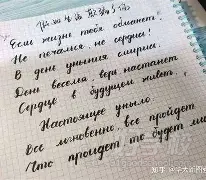 假如生活欺骗了你
Если жизнь тебя обманет,
Не печалься, не сердись!
В день уныния смирись:
День веселья, верь, настанет.
Сердце в будущем живёт;
Настоящее уныло:
Всё мгновенно, всё пройдёт;
Что пройдёт, то будет мило
知乎